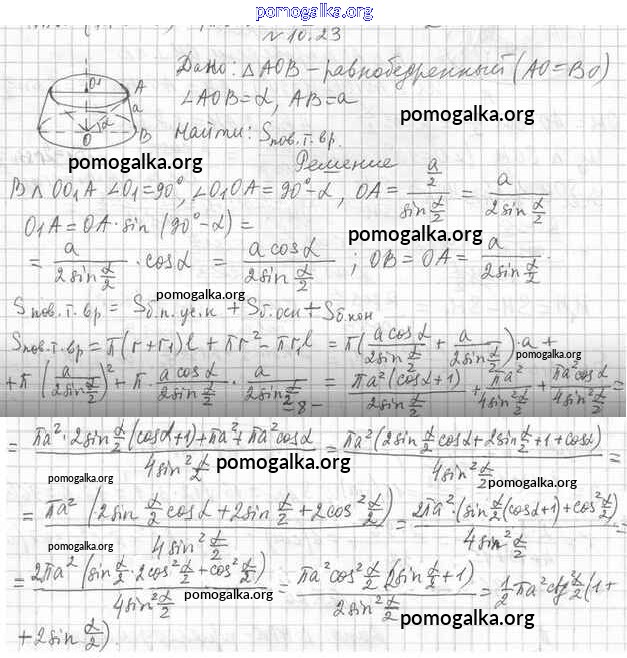 pomogalka.org
N 10.23
Дано: △AOB – равнобедренный (AO=BO)
∠AOB=α, AB=a
pomogalka.org
Найти: Sпов.т.вр.
pomogalka.org
Решение
В △ OO₁A ∠O₁=90°, ∠O₁OA=90°-α, OA = (a/2)/(sin α/2) = a/(2sin α/2)
O₁A = OA·sin (90°-α) =
pomogalka.org
= a/(2sin α/2) · cosα = (a cosα)/(2sin α/2) ; OB = OA = a/(2sin α/2).
pomogalka.org
Sпов.т.вр = Sб.п.ус.к + Sб.осн + Sб.кон
Sпов.т.вр = π(r+r₁)l + πr² - πr₁l = π((a cosα)/(2sin α/2) + a/(2sin α/2))·a +
pomogalka.org
+ π (a/(2sin α/2))² + π · (a cosα)/(2sin α/2) · a/(2sin α/2) = (πa²(cosα+1))/(2sin α/2) + πa²/(4sin² α/2) + (πa²cosα)/(4sin² α/2) =
- 8 -
= (πa²·2sin α/2 (cosα+1)+πa²+πa²cosα)/(4sin² α/2) = (πa²(2sin α/2 cosα+2sin α/2+1+cosα))/(4sin² α/2) =
pomogalka.org
pomogalka.org
pomogalka.org
= (πa² (2sin α/2 cosα + 2sin α/2 + 2cos² α/2))/(4sin² α/2) = (2πa²·(sin α/2 (cosα+1)+cos² α/2))/(4sin² α/2) =
pomogalka.org
pomogalka.org
= (2πa² (sin α/2 · 2cos² α/2 + cos² α/2))/(4sin² α/2) = (πa²cos² α/2 (2sin α/2 +1))/(2sin² α/2) = 1/2 πa²ctg² α/2 (1+
pomogalka.org
+ 2sin α/2).
pomogalka.org
O₁
A
a
α
O
B